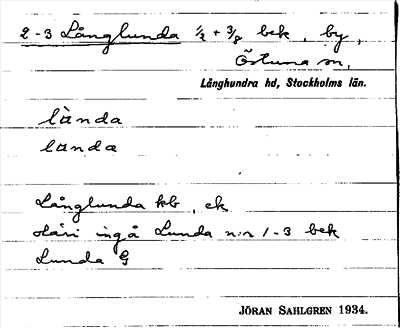 2-3 Långlunda ½ + 3/8 bek, by,
Östuna sn,
Långhundra hd, Stockholms län.
lùnda
lunda
Långlunda kb, ek
däri ingå Lunda n:r 1-3 bek
Lunda G
JÖRAN SAHLGREN 1934.